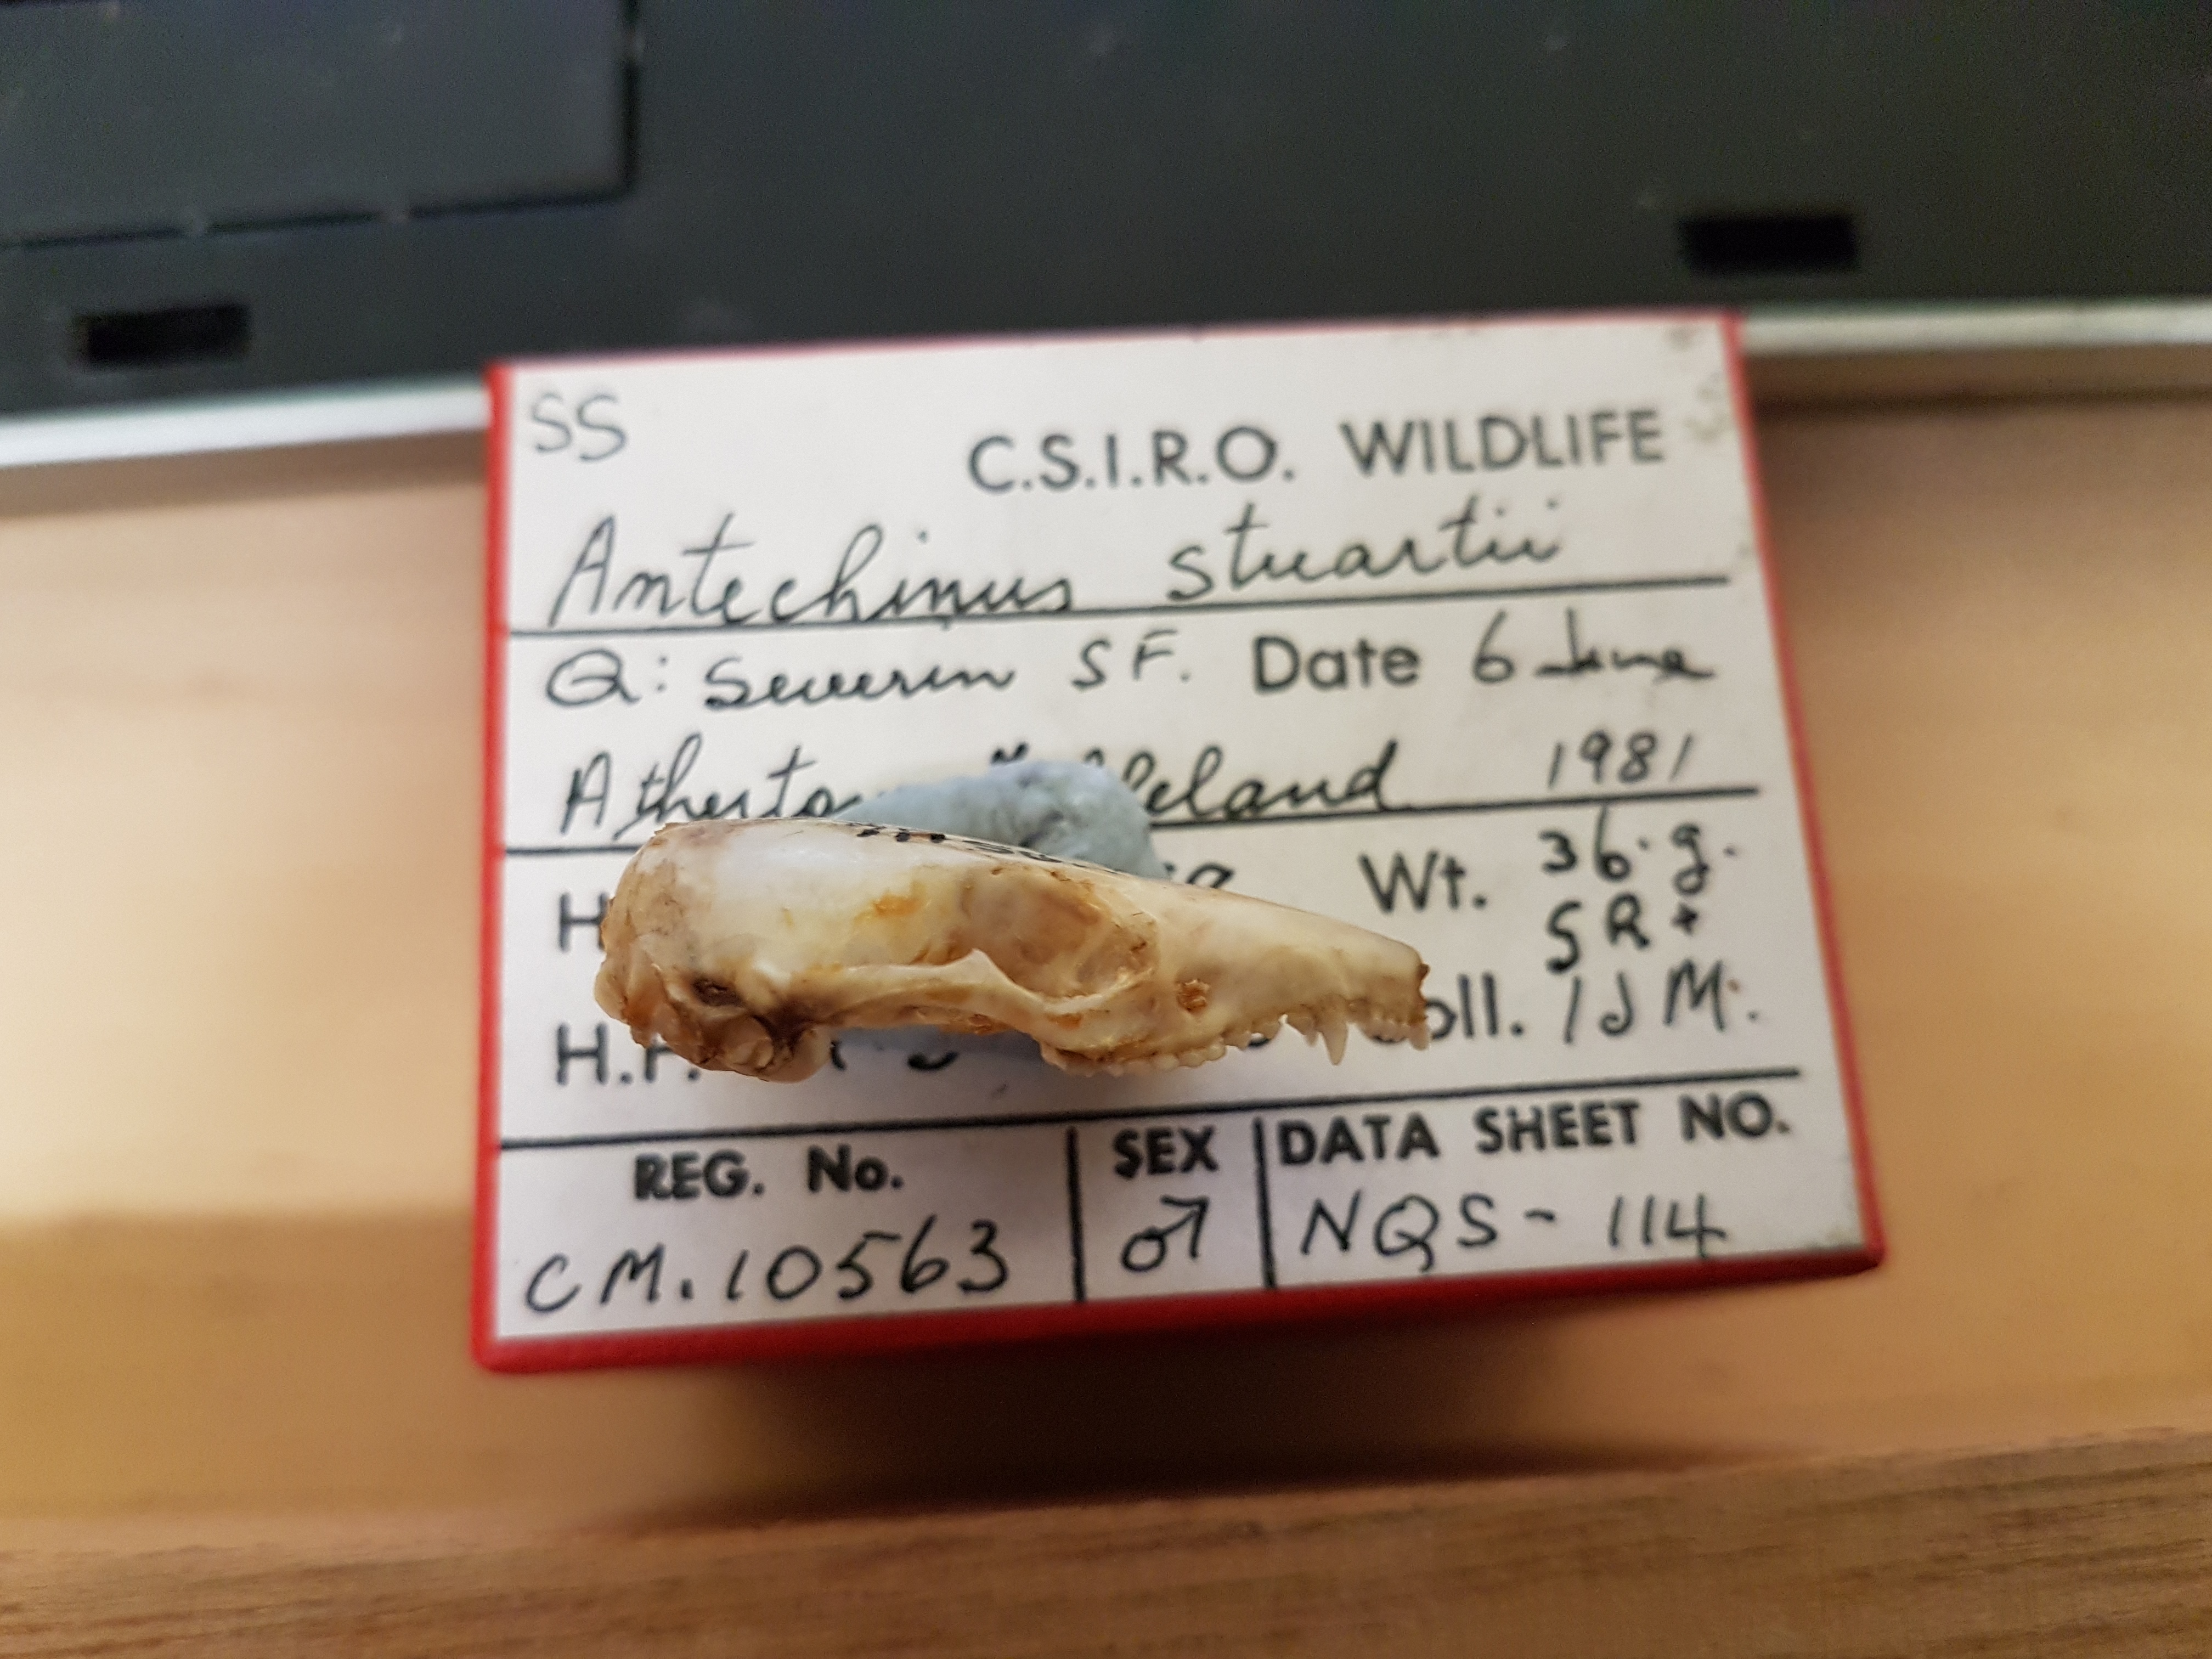 SS
C.S.I.R.O. WILDLIFE
Antechinus stuartii
Q: Severin S F. Date 6 June
Atherton eland 1981
H Wt. 36 g.
SR+
H. oll. I J M.
REG. No. SEX DATA SHEET NO.
CM. 10563 ♂ NQS - 114